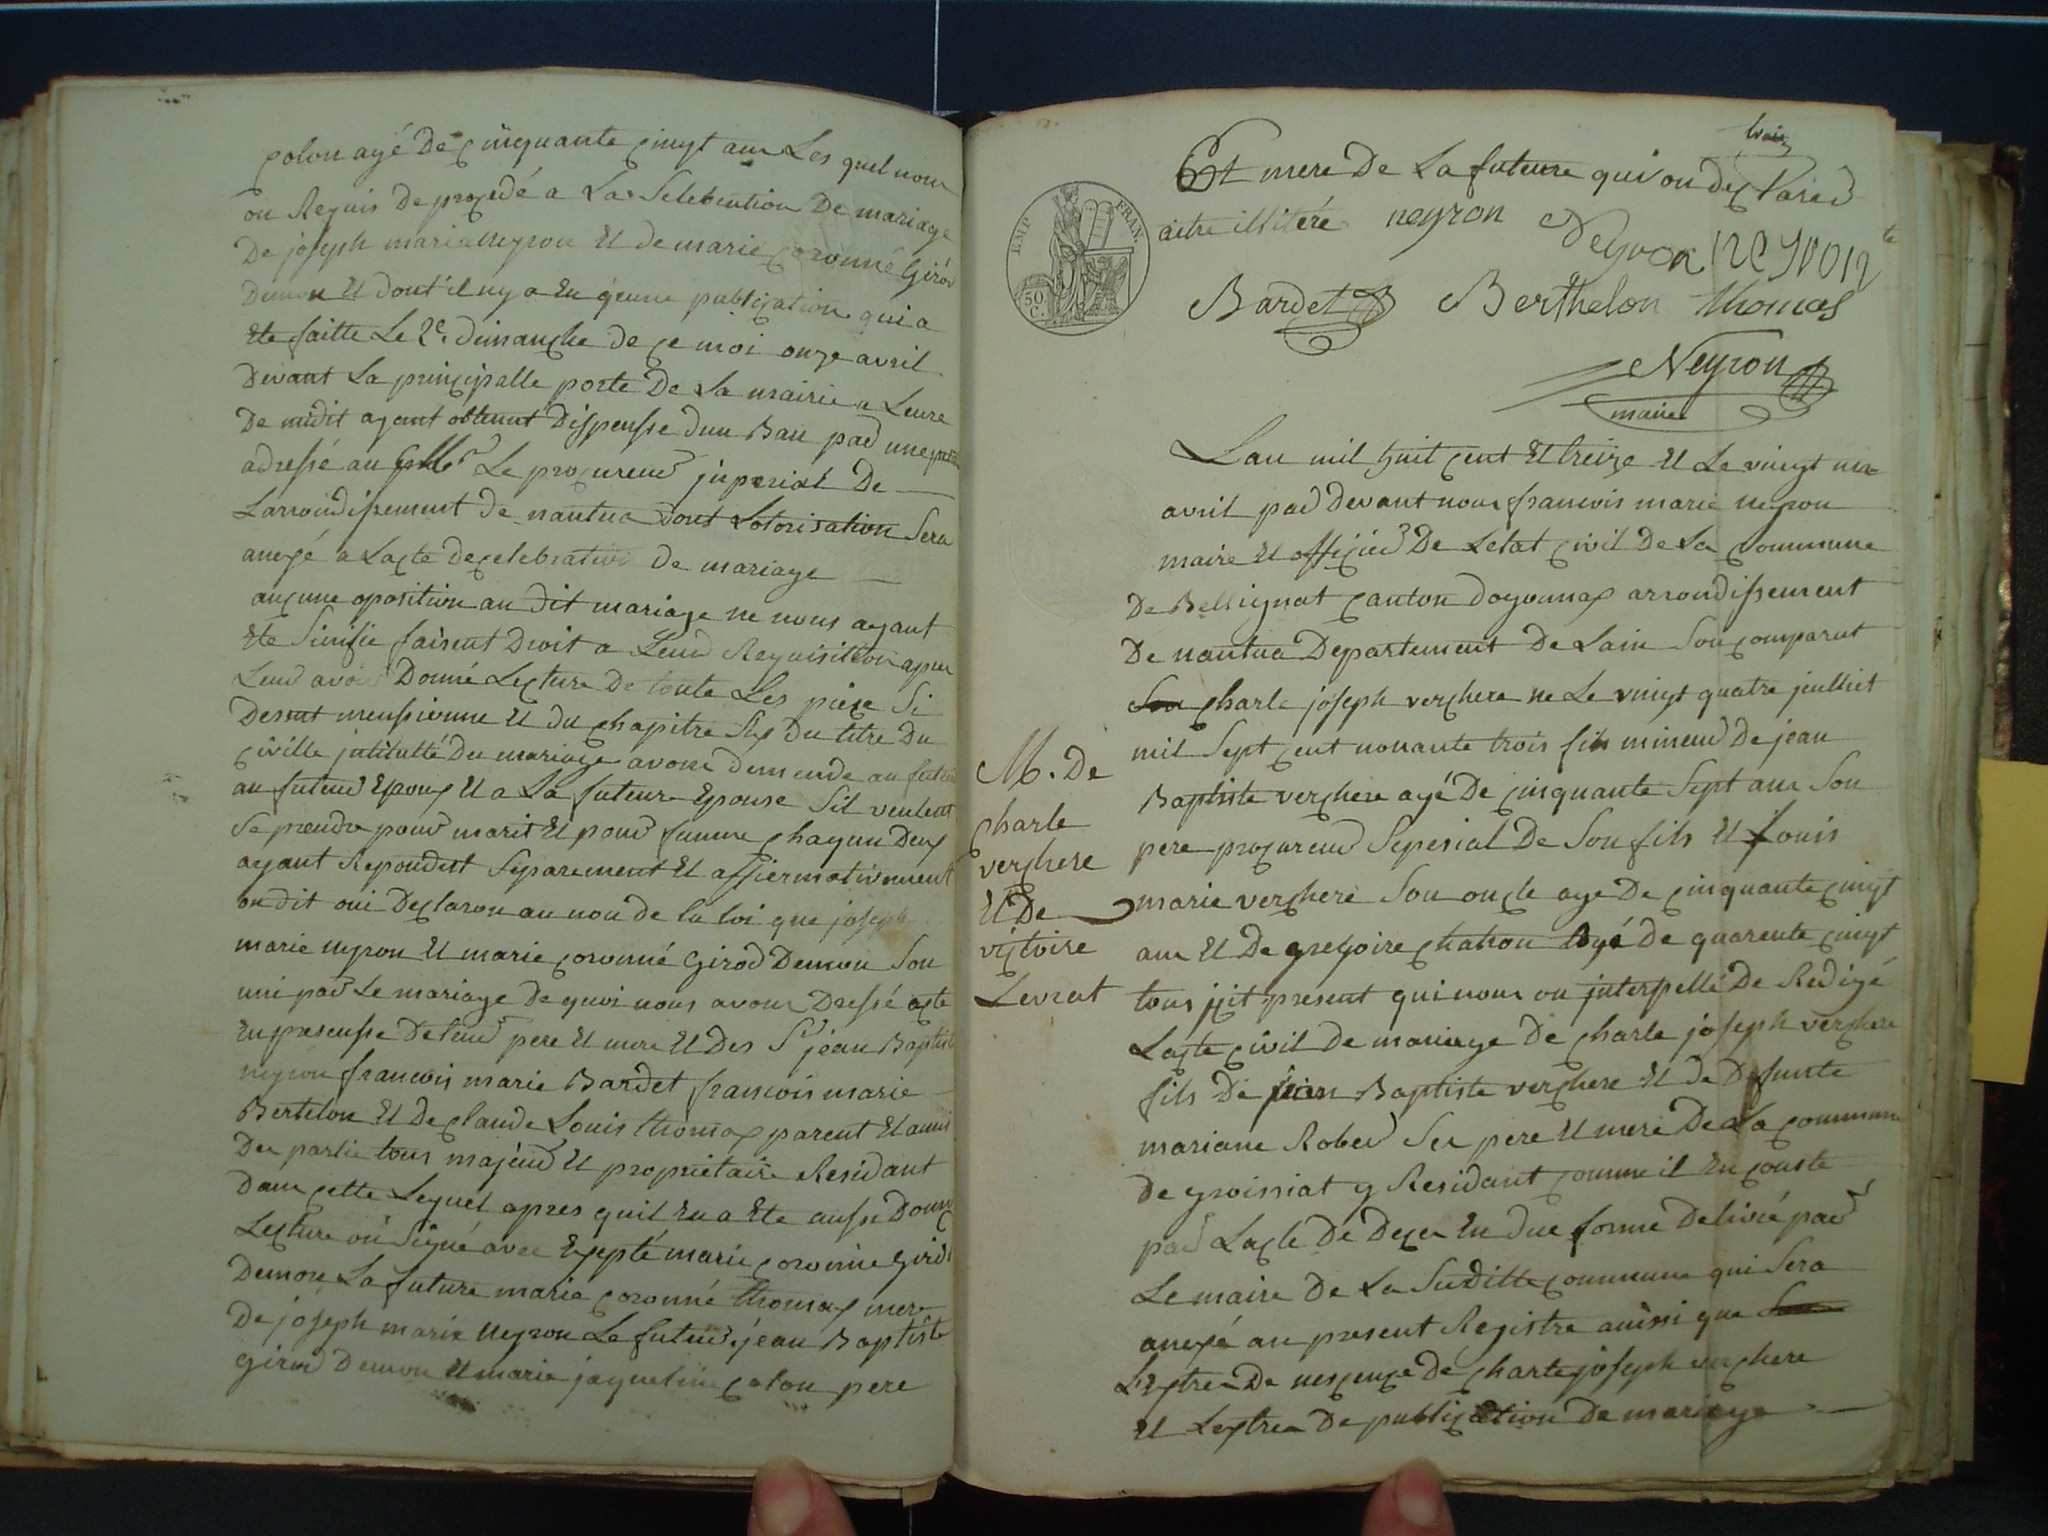 colon agé De cinquante cinq ans Les quel nous
on Requis De procedé a La Selebration De mariage
De joseph marie neyron Et de marie coronné Girod
Demon Et dont il ny a Eu q'eune publication qui a
Ete faitte Le 2e. dimanche de ce moi onze avril
Devant La principalle porte De La mairie a Leure
De midit ayant obtenut Dispensse dun Ban par une
adressé au Le procureur jnperial De
Larrondissement de nantua dont Lotorisation Sera
anexé a Lacte decelebration De mariage
aucune oposition au dit mariage ne nous ayant
Ete Sinifie faisent Droit a Leur Requisition apres
Leur avoir Donné Lecture De toute Les piece Si
Desut menssionne Et du chapitre Six Du titre Du
civille jntitutté Du mariage avons demende au futeur
au futeur Epoux Et a La future Epouse Sil veulent
Se prendre pour marit Et pour famme chaqun Deux
ayant Repondut Séparement Et affiermativement
on dit oui Declaron au non de la loi que joseph
marie neyron Et marie coronné Girod Demon Son
uni par Le mariage de quoi nous avons Dressé acte
En presensse De leur pere Et mere Et Des Sr jean Baptiste
neyron francois marie Bardet francois marie
Bertelon Et De claude Louis thomas parent Et amis
Des partie tous majeur Et proprietaire Residant
Dans cette Lequel apres quil En a Ete aussi Donné
Lecture on Signé avec Exepté marie coronné Girod
Demon La future marie coronné thomas mere
De joseph marie neyron Le futeur, jean Baptiste
Girod Demon Et marie jaqueline colon pere
trois
Et mere De La futeure qui on declared
aitre illitéré neyron Neyron neyron
Bardet Berthelon thomas
Neyron
maire
Lan mil huit cent Et treize Et Le vingt
avril par devant nous francois marie neyron
maire Et officier De Letat civil De La commune
De Bellignat canton doyonnax arrondissement
De nantua Departement De Lain Son comparut
Son charle joseph verchere ne Le vingt quatre juilliet
mil Sept cent nonante trois fils mineur De jean
Baptiste verchere agé De cinquante Sept ans Son
pere procureur Sepesial De Son fils Et Louis
marie verchere Son oncle age De cinquante cinq
ans Et De gregoire chatron agé de quarente cinq
tous jcit present qui nous on jnterpellé De Redigé
Lacte civil De mariage De charle joseph verchere
fils De jean Baptiste verchere Et de Defunte
mariane Rober Ses pere Et mere De La commune
De groissiat y Residant comme il En conste
par Lacte De Deces En due forme Delivré par
Le maire De La Suditte commune qui Sera
anexé au present Registre ainssi que
Lextrea De nescence de charle joseph verchere
Et Lextrea De publication De mariage
M. De
charle
verchere
Et De
victoire
Levrat
EMP. FRAN.
50
C.